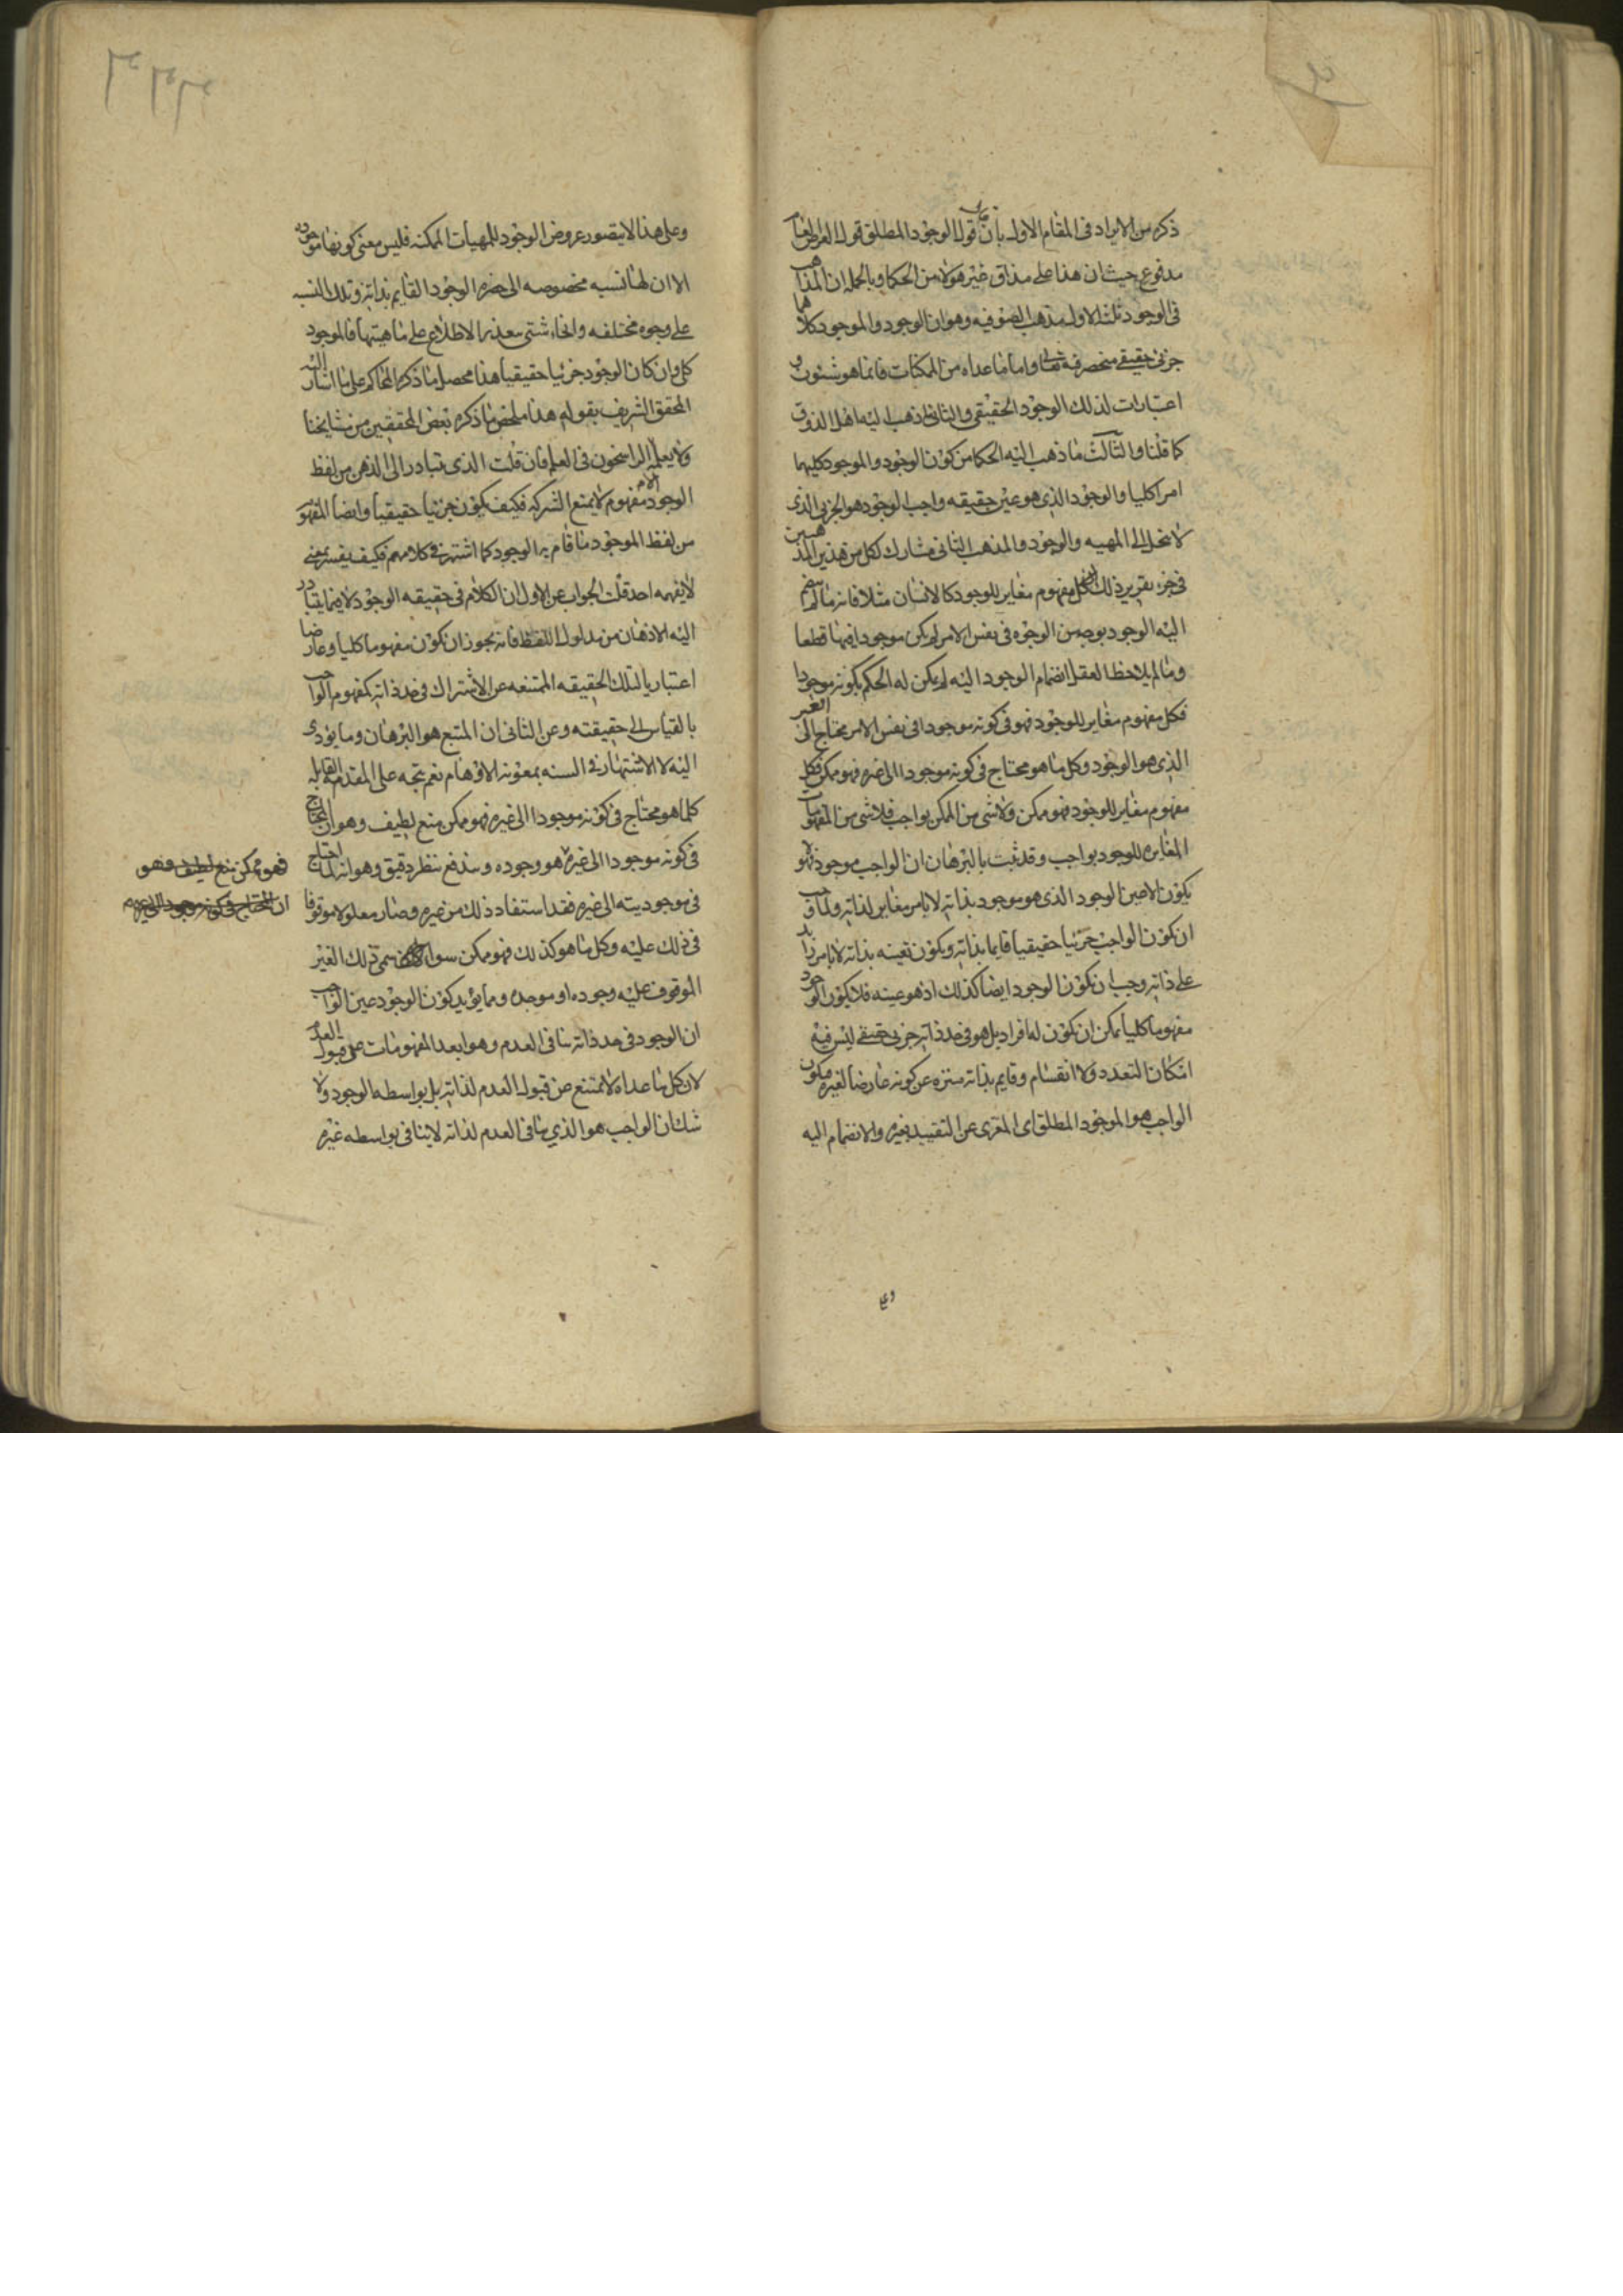 ذكره من الايراد فى المقام الاول بان قول الوجود المطلق قول العرض العام
مدفوع حيث ان هذا على مذاق غير هولا من الحكما وبالجمله ان المذاهب
فى الوجود ثلثه الاول مذهب الصوفيه وهو ان الوجود والموجود كلاهما
جزئى حقيقے منحصر فيه تعالى واما ما عداه من الممكنات فانما هو شئون و
اعتبارات لذلك الوجود الحقيقى والثانى ما ذهب اليه اهل الذوق
كما قلنا والثالث ما ذهب اليه الحكما من كون الوجود والموجود كليهما
امرا كليا والوجود الذى هو عين حقيقه واجب الوجود هو الجزئى الذى
لا ينحل الى المهيه والوجود والمذهب الثانى مشارك لكل من هذين المذهبين
فى جزء تقرير ذلك ان كل مفهوم مغاير للوجود كالانسان مثلا فانه ما لم ينضم
اليه الوجود بوجه من الوجوه فى نفس الامر لم يكن موجودا فيها قطعا
وما لم يلاحظ العقل انضمام الوجود اليه لم يكن له الحكم بكونه موجودا
فكل مفهوم مغاير للوجود فهو فى كونه موجودا فى نفس الامر محتاج الى الغير
الذى هو الوجود وكل ما هو محتاج فى كونه موجودا الى غيره فهو ممكن فكل
مفهوم مغاير للوجود فهو ممكن ولا شى من الممكن بواجب فلا شى من المفهومات
المغايره للوجود بواجب وقد ثبت بالبرهان ان الواجب موجود فهو لا
يكون الا عين الوجود الذى هو موجود بذاته لا بامر مغاير لذاته ولما وجب
ان يكون الواجب جزئيا حقيقيا قايما بذاته ويكون تعينه بذاته لا بامر زايد
على ذاته وجب ان يكون الوجود ايضا كذلك اذ هو عينه فلا يكون الوجود
مفهوما كليا يمكن ان يكون له افراد بل هو فى حد ذاته جزئى حقيقے ليس فيه
امكان التعدد ولا انقسام وقايم بذاته منزه عن كونه عارضا لغيره فيكون
الواجب هو الموجود المطلق اى المعرى عن التقييد بغيره والانضمام اليه
وعلى هذا لا يتصور عروض الوجود للمهيات الممكنه فليس معنى كونها موجوده
الا ان لها نسبه مخصوصه الى حضره الوجود القايم بذاته وتلك النسبه
على وجوه مختلفه وانحاء شتى يتعذر الاطلاع على ماهيتها فالموجود
كلى وان كان الوجود جزئيا حقيقيا هذا محصل ما ذكره المحاكم على ما اشار اليه
المحقق الشريف بقوله هذا ملخص ما ذكره بعض المحققين من مشايخنا
ولا يعلمه الا الراسخون فى العلم فان قلت الذى يتبادر الى الذهن من لفظ
الوجود مفهوم لا يمنع الشركه فكيف يكون جزئيا حقيقيا وايضا المفهوم
من لفظ الموجود ما قام به الوجود كما اشتهر فى كلامهم فكيف يفسر بمعنى
لا يفهمه احد قلت الجواب عن الاول ان الكلام فى حقيقه الوجود لا فيما يتبادر
اليه الاذهان من مدلول اللفظ فانه يجوز ان يكون مفهوما كليا وعارضا
اعتباريا لتلك الحقيقه الممتنعه عن الاشتراك فى حد ذاته كمفهوم الواجب
بالقياس الى حقيقته وعن الثانى ان المتبع هو البرهان وما يؤدى
اليه لا الاشتهار فى السنه بمعونه الاوهام نعم يتجه على المقدمه القايله
كلما هو محتاج فى كونه موجودا الى غيره فهو ممكن منع لطيف وهو ان المحتاج
فى كونه موجودا الى غيره هو وجوده ويندفع بنظر دقيق وهو انه لما احتاج
فى موجوديته الى غيره فقد استفاد ذلك من غيره وصار معلولا موقوفا
فى ذلك عليه وكل ما هو كذلك فهو ممكن سوا سمى ذلك الغير
الموقوف عليه وجوده او موجده ومما يؤيد كون الوجود عين الواجب
ان الوجود فى حد ذاته ينافى العدم وهو ابعد المفهومات عن قبول العدم
لان كل ما عداه لا يمتنع عن قبول العدم لذاته بل بواسطه الوجود ولا
شك ان الواجب هو الذي ينافى العدم لذاته لا ينافى بواسطه غيره
فهو ممكن منع لطيف وهو
ان المحتاج فى كونه موجودا الى غيره